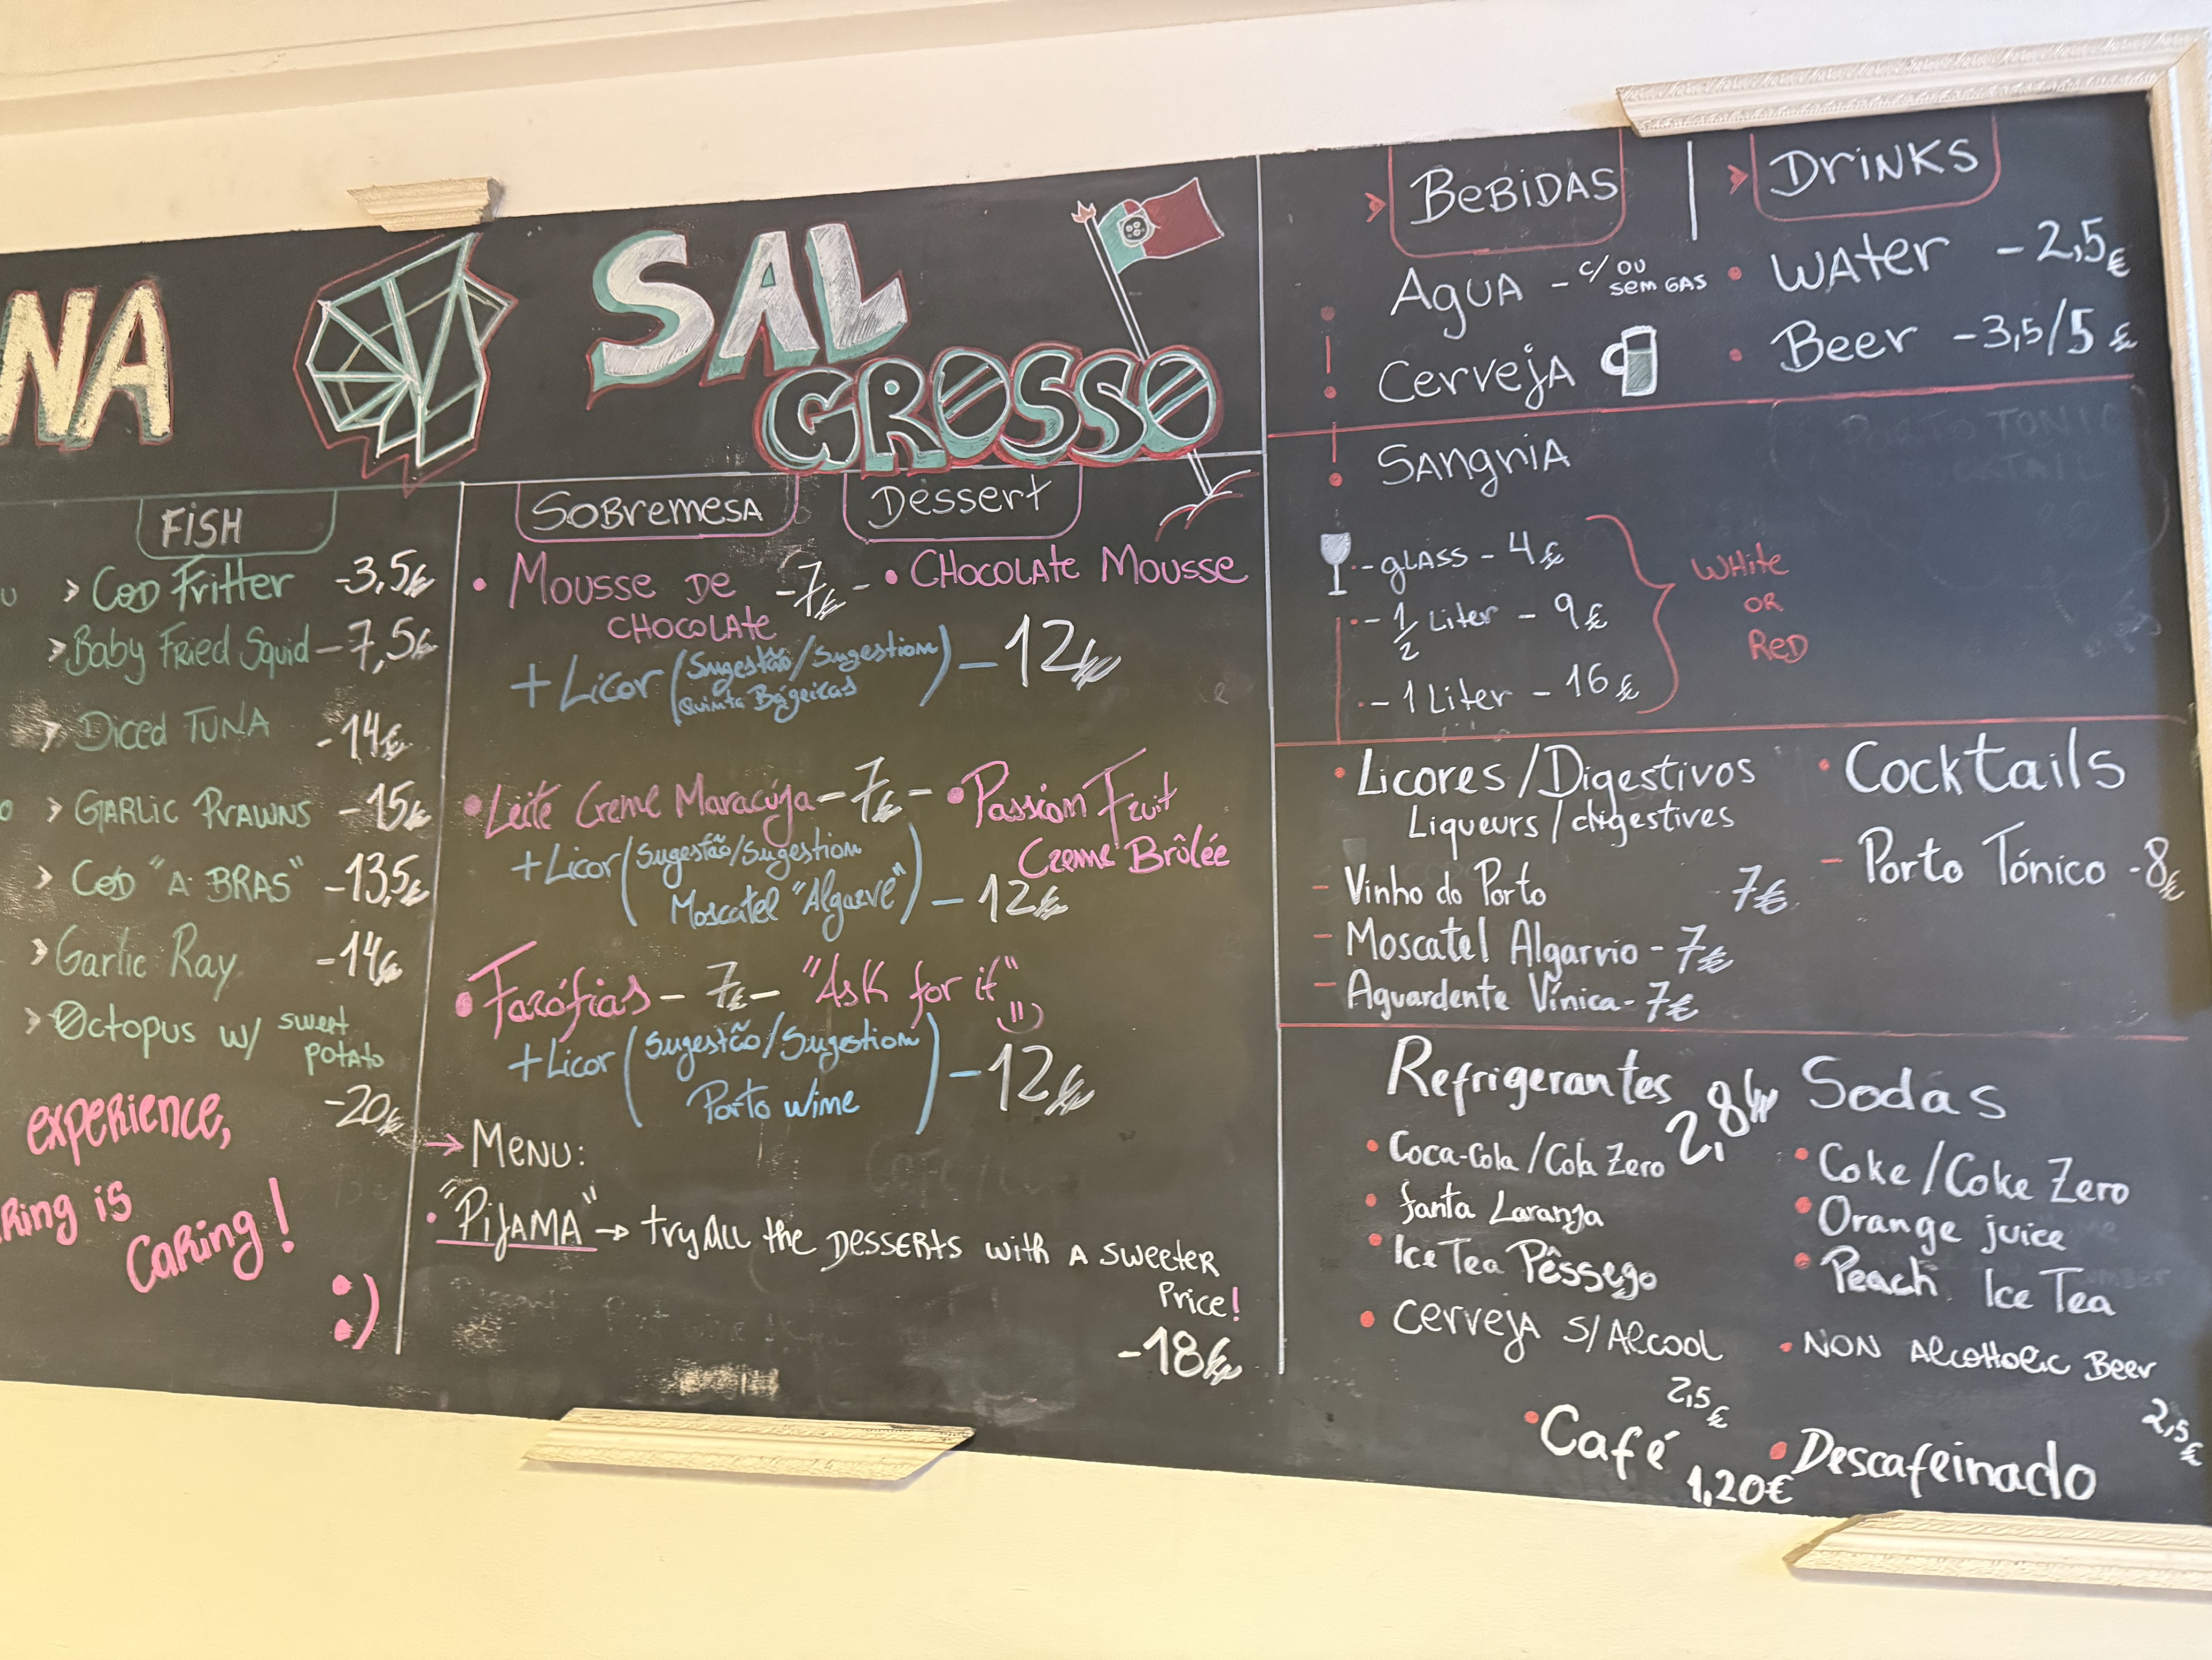 NA
SAL
GROSSO
FiSH
> COD Fritter -3,5€
> Baby Fried Squid - 7,5€
> Diced TUNA -14€
> GARLIC PRAWNS -15€
> COD "A BRAS" -13,5€
> Garlic Ray -14€
> Octopus w/ sweet
potato
-20€
experience,
Ring is
CaRing!
:)
SOBremesA Dessert
• Mousse De -7€- • CHOCOLAte Mousse
CHOCOLAte
+ Licor (Sugestão/Sugestion
Quinta Bágeiras) - 12€
• Leite Creme Maracúja - 7€ - • Passion Fruit
Creme Brûlée
+ Licor (Sugestão/Sugestion
Moscatel "Algarve") - 12€
• Farófias - 7€ - "Ask for it"
+ Licor (Sugestão/Sugestion
Porto wine) - 12€
→ Menu:
• "PiJAMA" → try All the Desserts with A sweeter
Price!
-18€
> BeBiDAS | > DriNKS
AgUA - c/ ou
sem GAS
• WAter - 2,5€
CervejA • Beer -3,5/5€
SAngriA
- glASS - 4€
- 1/2 Liter - 9€
- 1 Liter - 16€
WHite
OR
ReD
• Licores /Digestivos
Liqueurs / digestives
- Vinho do Porto 7€
- Moscatel Algarvio - 7€
- Aguardente Vínica - 7€
• Cocktails
- Porto Tónico - 8€
Refrigerantes 2,8€ Sodas
• Coca-Cola / Cola Zero • Coke / Coke Zero
• fanta Laranja • Orange juice
• Ice Tea Pêssego • Peach Ice Tea
• CervejA S/Alcool • NON AlcoHolic Beer
2,5€ 2,5€
• Café • Descafeinado
1,20€